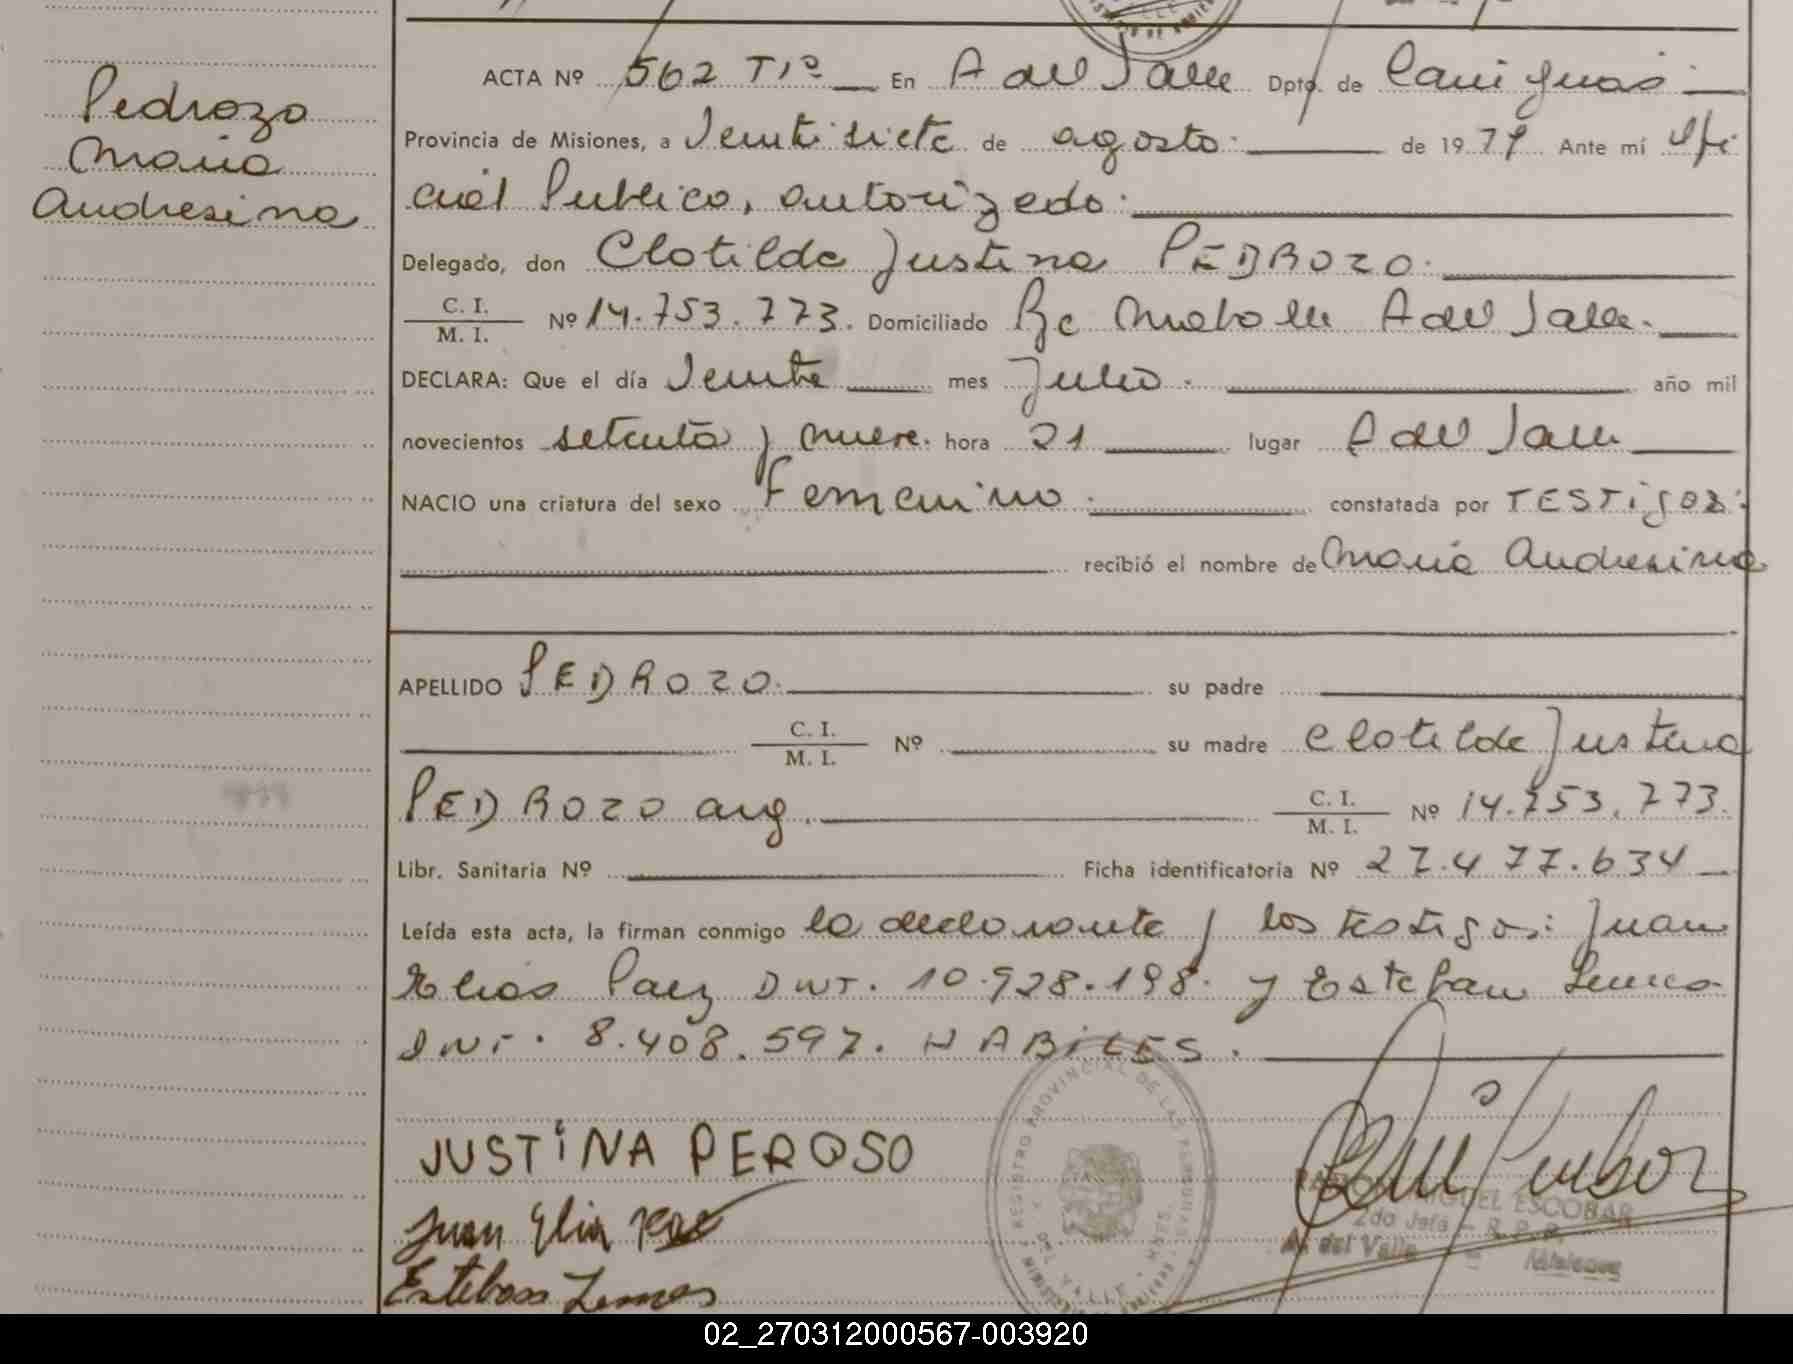 Pedrozo
Maria
Andresina
ACTA Nº 562 Tº Iº En A del Valle Dpto. de Cainguás
Provincia de Misiones, a Veinti siete de agosto de 1979 Ante mí Ofi
cial Publico, autorizado
Delegado, don Clotilde Justina PEDROZO
C. I.
M. I. Nº 14.753.773. Domiciliado A del Valle
DECLARA: Que el día Veinte mes Julio año mil
novecientos setenta y nueve. hora 21 lugar A del Valle
NACIO una criatura del sexo Femenino constatada por TESTigos:
recibió el nombre de Maria Andresina
APELLIDO PEDROZO su padre
C. I.
M. I. Nº su madre Clotilde Justina
PEDROZO arg. C. I.
M. I. Nº 14.753.773.
Libr. Sanitaria Nº Ficha identificatoria Nº 27.477.634
Leída esta acta, la firman conmigo la declarante y los testigos: Juan
Elias Paez DNI. 10.928.198. y Esteban Lemes
DNI. 8.408.597. HABiLES.
JUSTiNA PEROSO
Juan Elia
Esteban Lemes
REGISTRO PROVINCIAL DE LAS PERSONAS
RAMON MIGUEL ESCOBAR
2do Jefe - R. P. P.
A. del Valle - Misiones
02_270312000567-003920